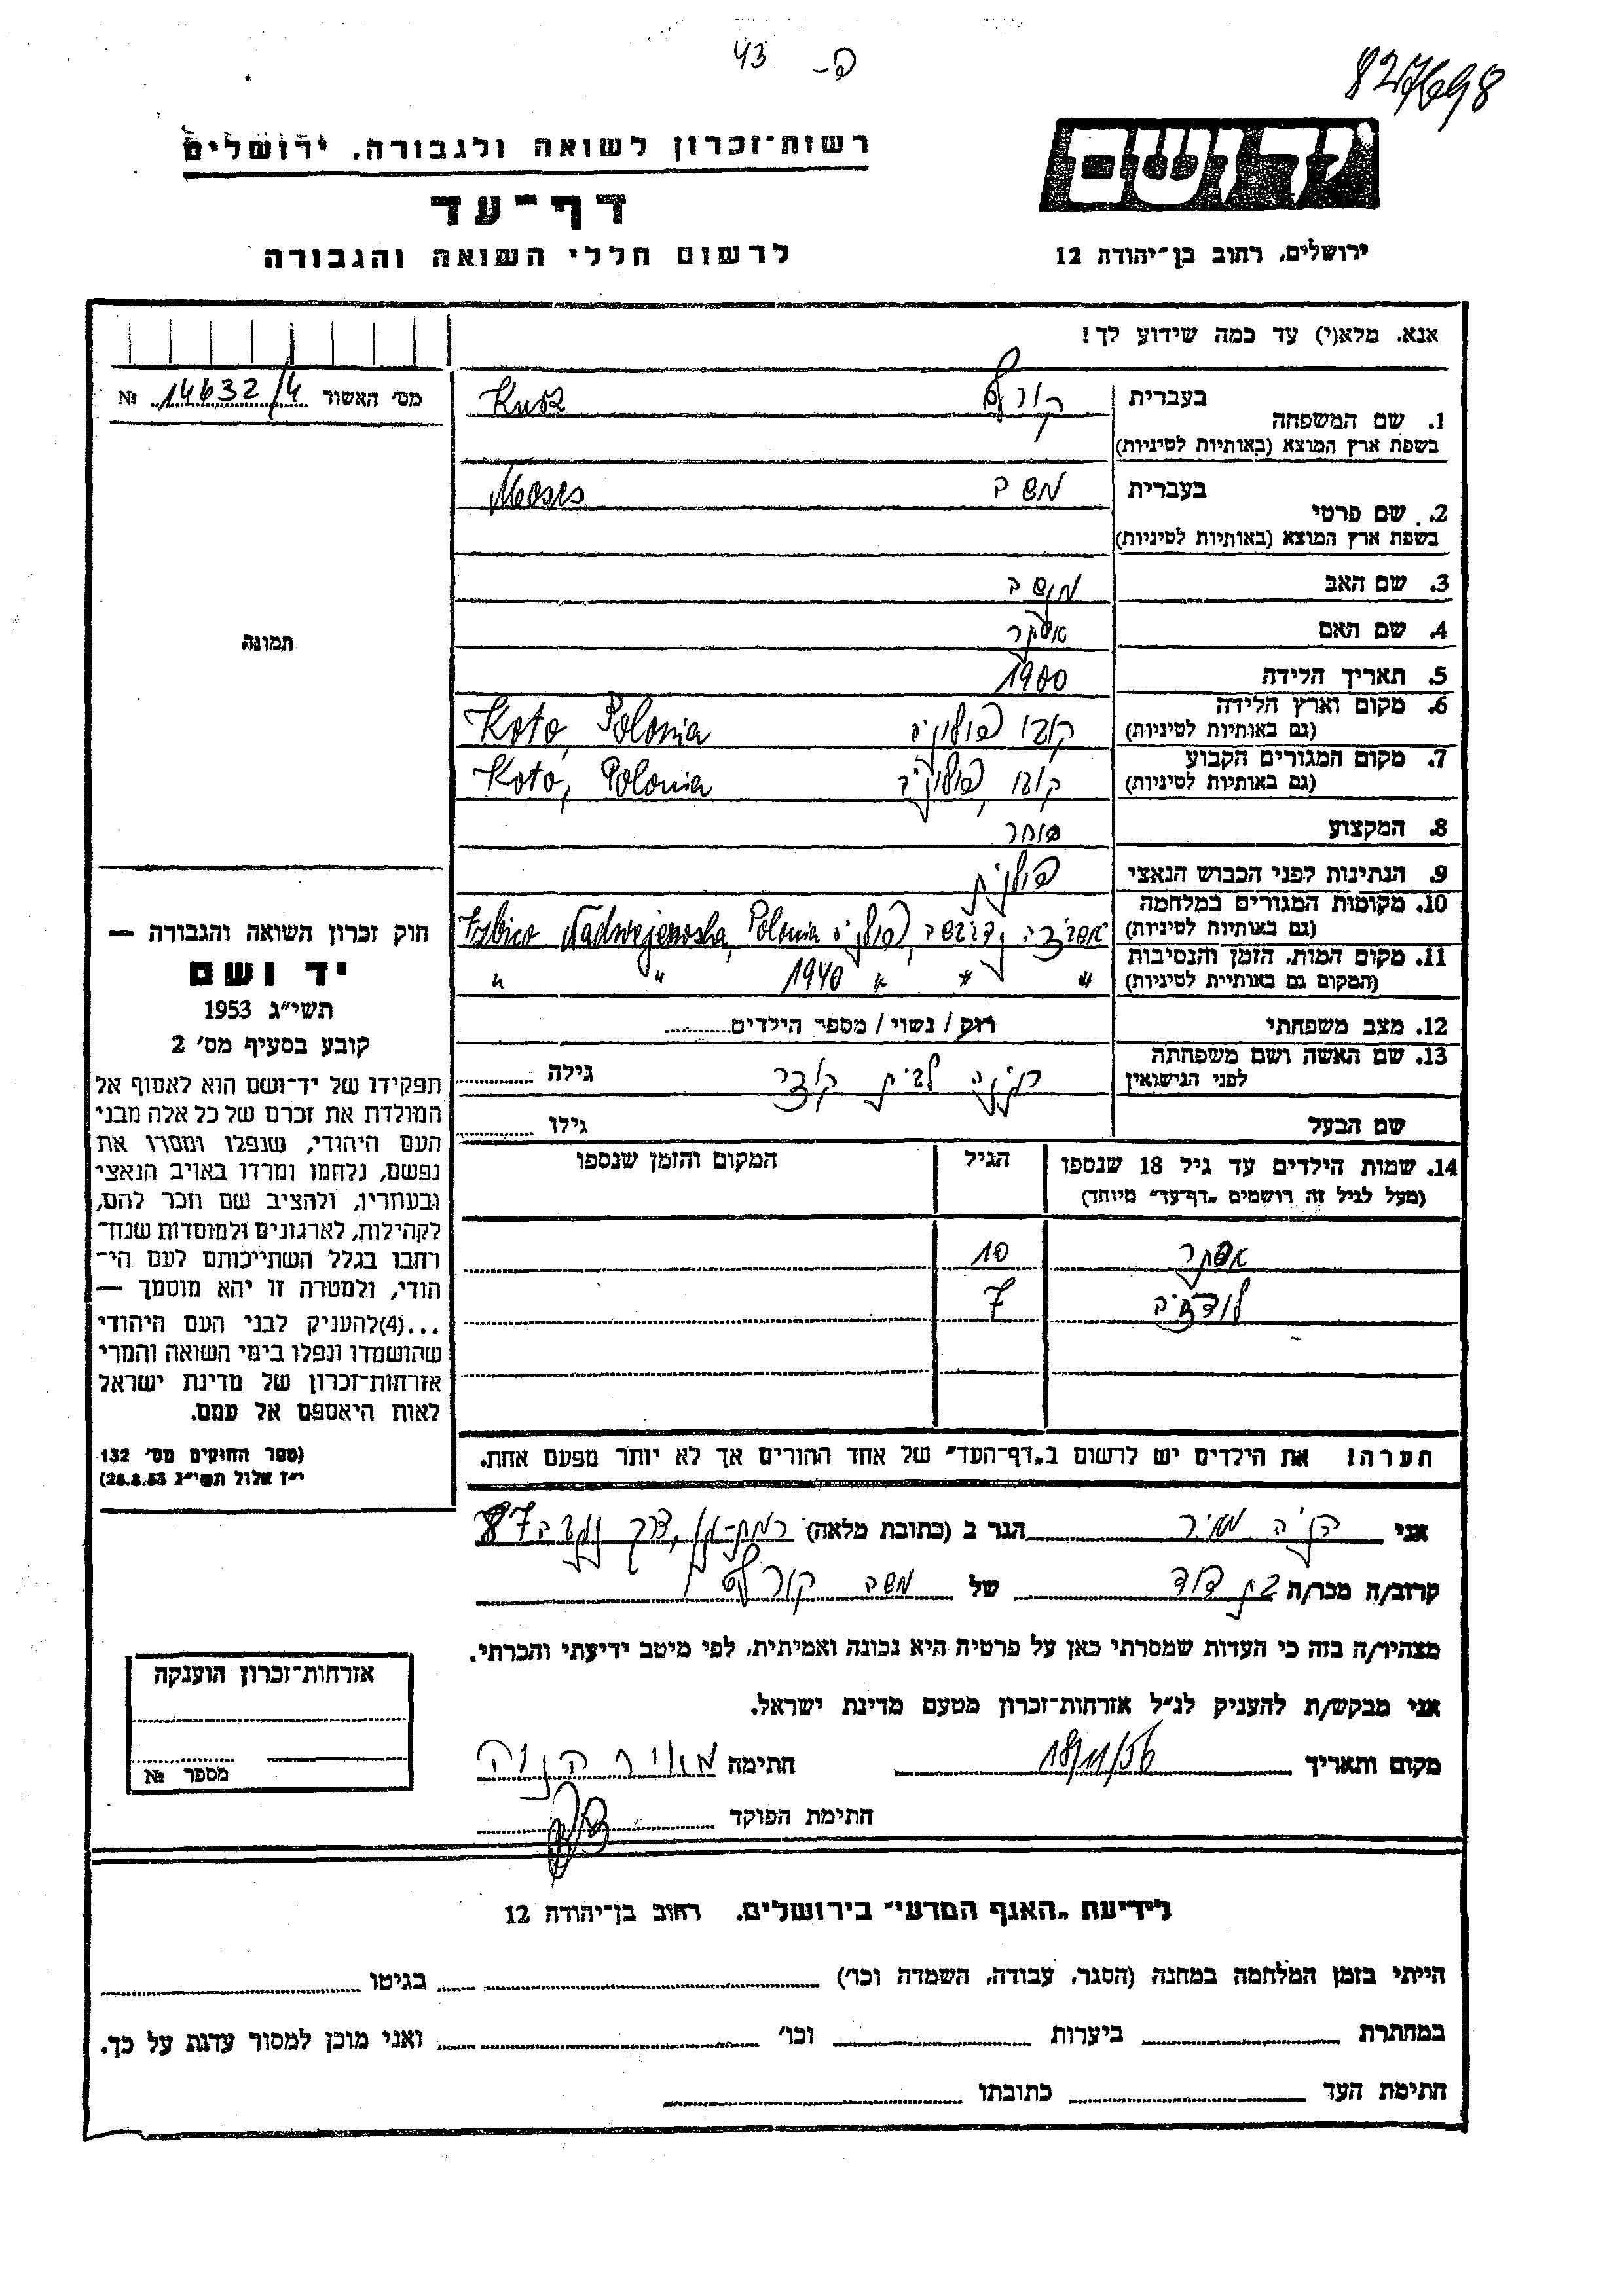 43 פ-
827698
רשות־זכרון לשואה ולגבורה, ירושלים
דף־עד
לרשום חללי השואה והגבורה
יד ושם
ירושלים, רחוב בן־יהודה 12
אנא, מלא(י) עד כמה שידוע לך!
מס' האשור 14632/4 №
1. שם המשפחה
בעברית
Kurz
בשפת ארץ המוצא (באותיות לטיניות)
2. שם פרטי
בעברית משה
Moses
בשפת ארץ המוצא (באותיות לטיניות)
3. שם האב משה
4. שם האם אסתר
5. תאריך הלידה 1900
6. מקום וארץ הלידה
(גם באותיות לטיניות)
קולו פולניה Koto, Polonia
7. מקום המגורים הקבוע
(גם באותיות לטיניות)
קולו, פולניה Koto, Polonia
8. המקצוע סוחר
9. הנתינות לפני הכבוש הנאצי פולנית
10. מקומות המגורים במלחמה
(גם באותיות לטיניות)
פולניה Izbica Nadwejenoska, Polonia
11. מקום המות, הזמן והנסיבות
(המקום גם באותיית לטיניות)
" " " 1940 " "
12. מצב משפחתי רוק / נשוי / מספר הילדים
13. שם האשה ושם משפחתה
לפני הנישואין
לבית גילה
שם הבעל גילו
14. שמות הילדים עד גיל 18 שנספו
(מעל לגיל זה רושמים „דף־עד" מיוחד)
הגיל
המקום והזמן שנספו
אסתר 10
7
הערה! את הילדים יש לרשום ב„דף־העד" של אחד ההורים אך לא יותר מפעם אחת.
תמונה
חוק זכרון השואה והגבורה —
יד ושם
תשי"ג 1953
קובע בסעיף מס' 2
תפקידו של יד־ושם הוא לאסוף אל
המולדת את זכרם של כל אלה מבני
העם היהודי, שנפלו ומסרו את
נפשם, נלחמו ומרדו באויב הנאצי
ובעוזריו, ולהציב שם וזכר להם,
לקהילות, לארגונים ולמוסדות שנח־
רחבו בגלל השתייכותם לעם הי־
הודי, ולמטרה זו יהא מוסמך —
...(4)להעניק לבני העם היהודי
שהושמדו ונפלו בימי השואה והמרי
אזרחות־זכרון של מדינת ישראל
לאות היאספם אל עמם.
(ספר החוקים מס' 132
י"ז אלול תשי"ג 28.8.53)
אני חניה מאיר הגר ב (כתובת מלאה) רמת-גן, דרך 87
קרוב/ה מכר/ה בת דוד של משה
מצהיר/ה בזה כי העדות שמסרתי כאן על פרטיה היא נכונה ואמיתית, לפי מיטב ידיעתי והכרתי.
אני מבקש/ת להעניק לנ"ל אזרחות־זכרון מטעם מדינת ישראל.
מקום ותאריך 18/11/56 חתימה מאיר חניה
חתימת הפוקד
אזרחות־זכרון הוענקה
מספר №
לידיעת „האגף המדעי" בירושלים, רחוב בן־יהודה 12
הייתי בזמן המלחמה במחנה (הסגר, עבודה, השמדה וכו') בגיטו
במחתרת ביערות וכו' ואני מוכן למסור עדות על כך.
חתימת העד כתובתו